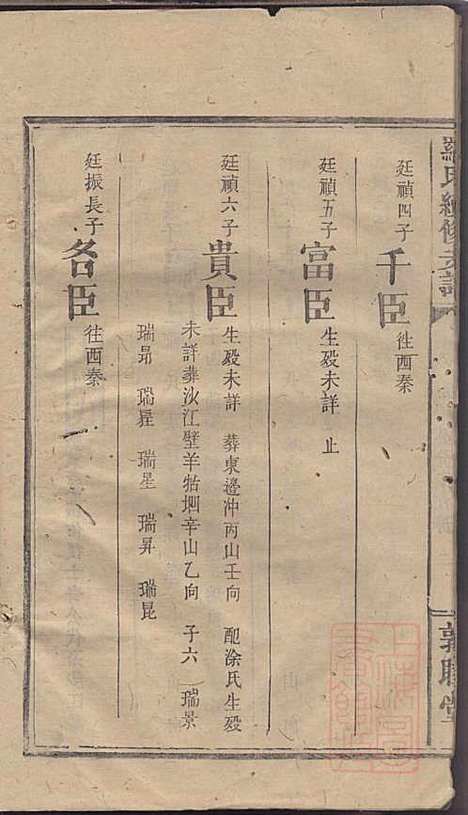 羅氏續修支譜
敦睦堂
廷禎四子 千臣 往西秦
廷禎五子 富臣 生殁未詳 止
廷禎六子 貴臣 生殁未詳 葬東邊冲丙山壬向 配涂氏生殁
未詳葬汷江壁羊牯堌辛山乙向 子六 瑞景
瑞昴 瑞星 瑞昇 瑞昆
廷振長子 名臣 往西秦